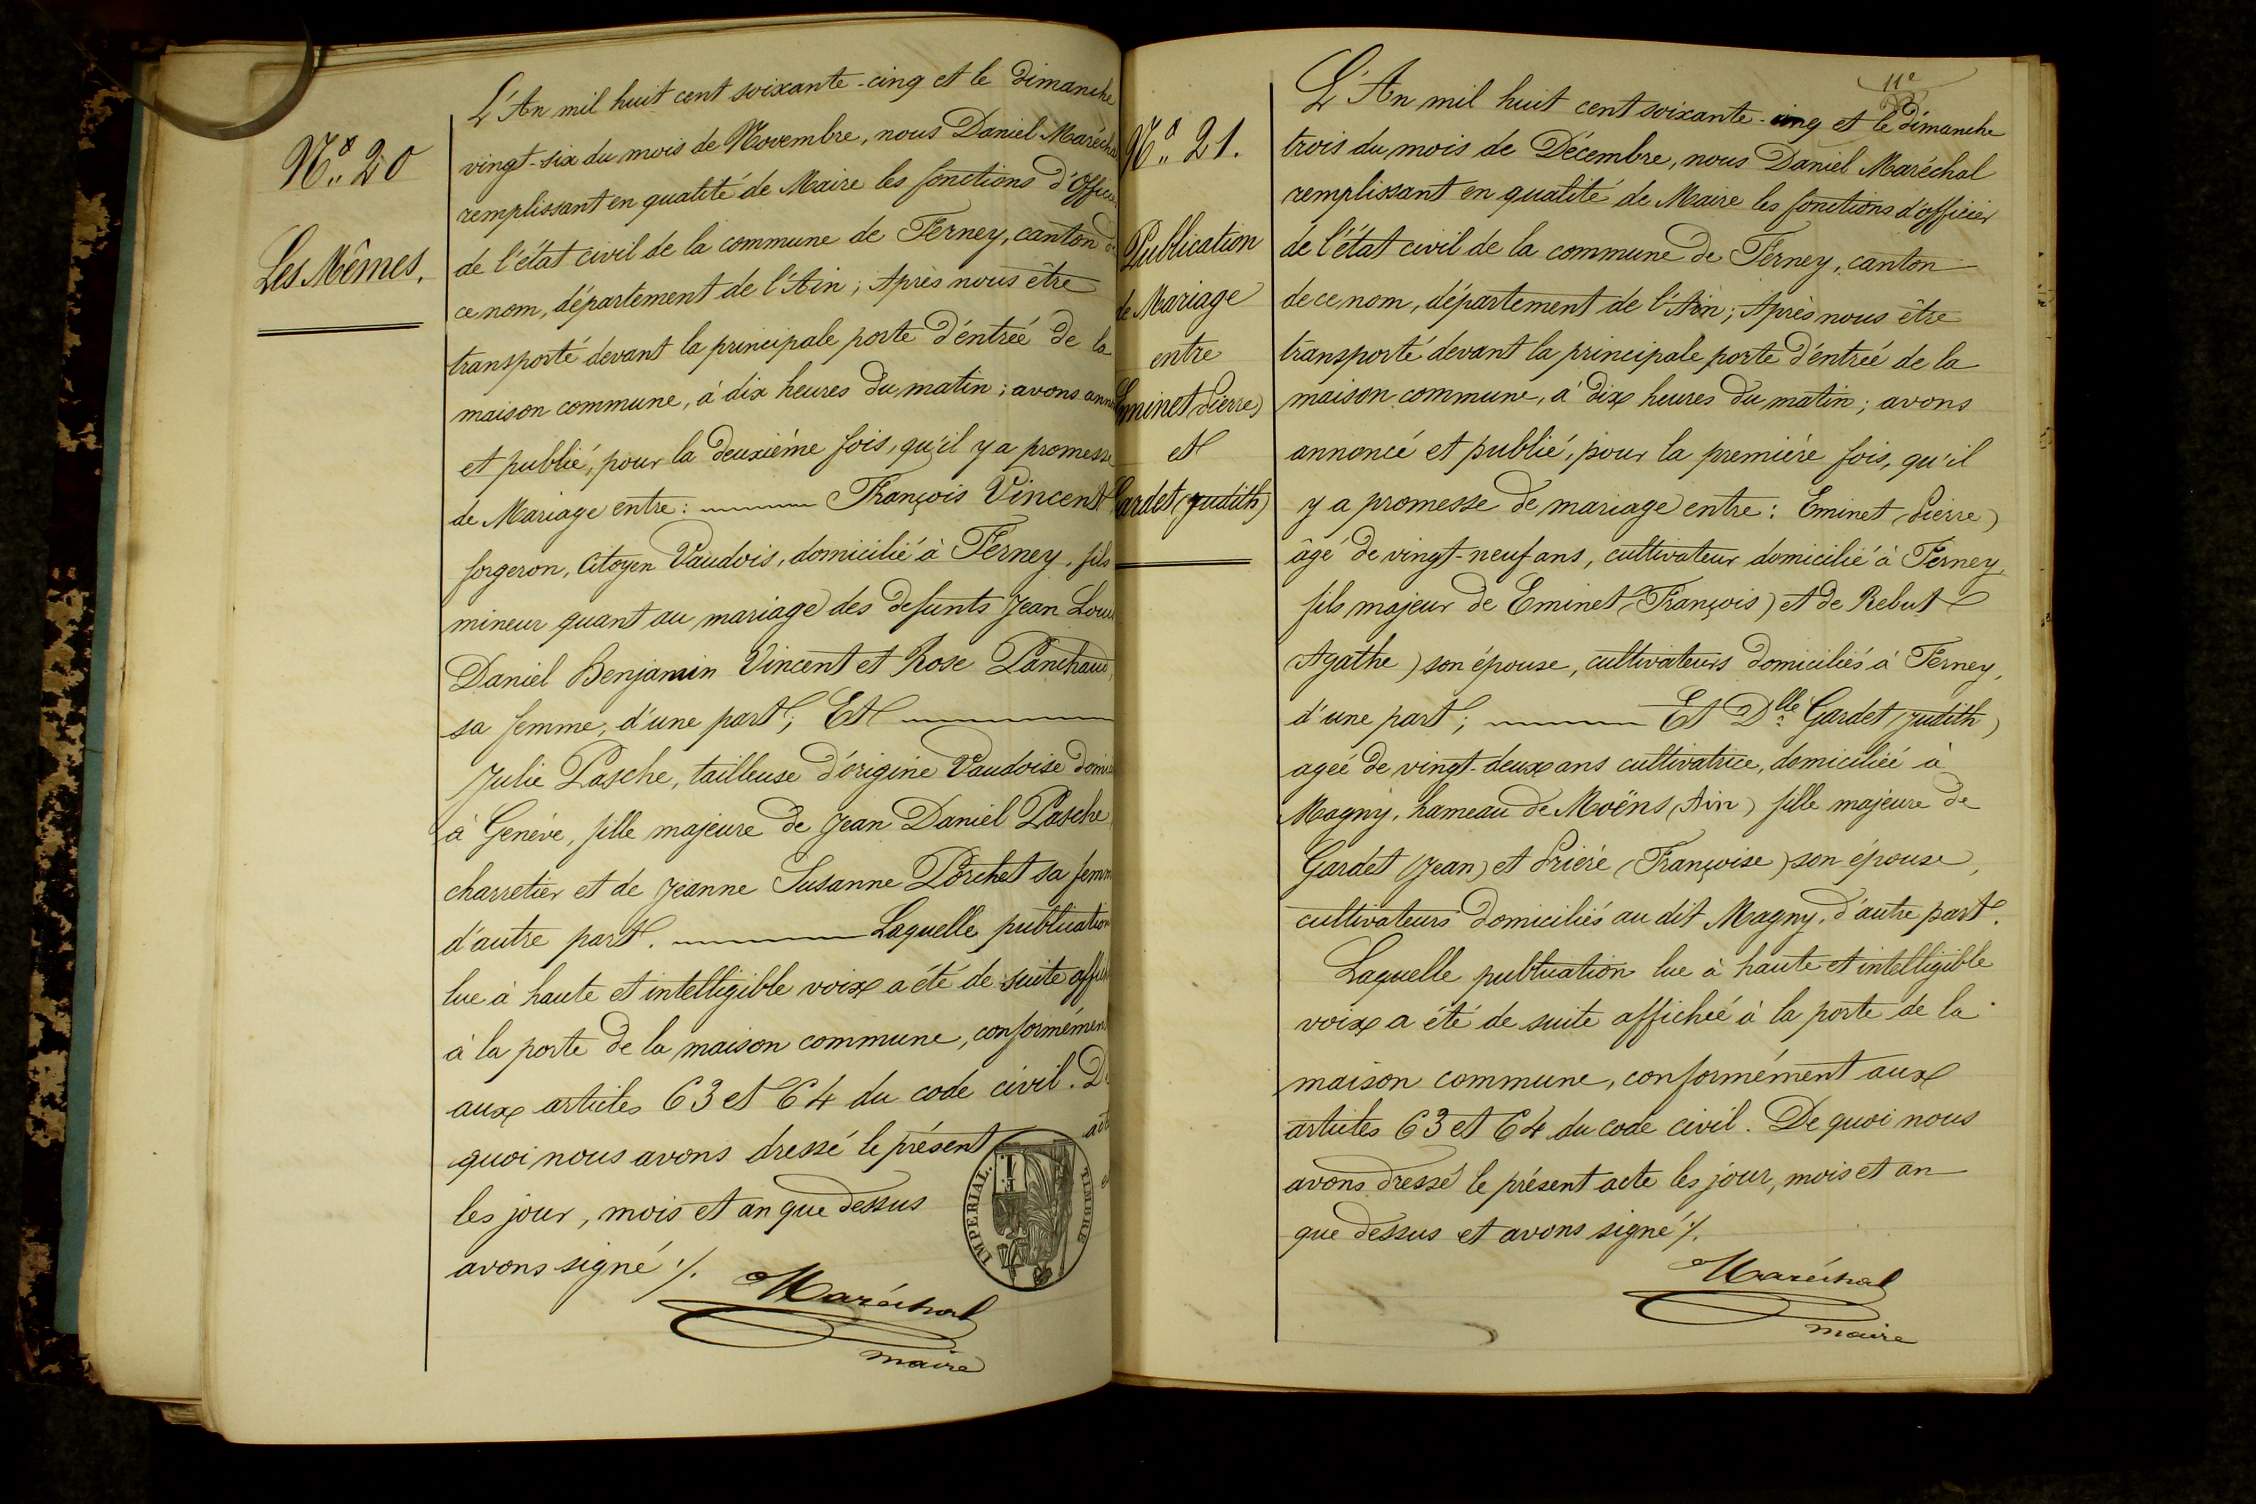 N.º 20
Les Mêmes.
L'An mil huit cent soixante-cinq et le Dimanche
vingt-six du mois de Novembre, nous Daniel Maréchal
remplissant en qualité de Maire les fonctions d'Officier
de l'état civil de la commune de Ferney, canton de
ce nom, département de l'Ain; Après nous être
transporté devant la principale porte d'entrée de la
maison commune, à dix heures du matin; avons
et publié, pour la deuxième fois, qu'il y a promesse
de Mariage entre: François Vincent
forgeron, Citoyen Vaudois, domicilié à Ferney, fils
mineur quant au mariage des defunts Jean Louis
Daniel Benjamin Vincent et Rose Panchaud,
sa femme, d'une part; Et
Julie Pasche, tailleuse d'origine Vaudoise
à Genève, fille majeure de Jean Daniel Pasche,
charretier et de Jeanne Susanne Porchet sa femme
d'autre part. Laquelle publication
lue à haute et intelligible voix a été de suite
à la porte de la maison commune, conformément
aux articles 63 et 64 du code civil. De
quoi nous avons dressé le présent acte
les jour, mois et an que dessus et
avons signé ./.
Maréchal
maire
IMPERIAL. TIMBRE
11e
N.º 21.
Publication
de Mariage
entre
Eminet (Pierre)
et
Gardet (Judith)
L'An mil huit cent soixante-cinq et le Dimanche
trois du mois de Décembre, nous Daniel Maréchal
remplissant en qualité de Maire les fonctions d'officier
de l'état civil de la commune de Ferney, canton
de ce nom, département de l'Ain; Après nous être
transporté devant la principale porte d'entrée de la
maison commune, à dix heures du matin; avons
annoncé et publié, pour la première fois, qu'il
y a promesse de mariage entre: Eminet (Pierre)
âgé de vingt-neuf ans, cultivateur domicilié à Ferney,
fils majeur de Eminet (François) et de Rebut
(Agathe) son épouse, cultivateurs domiciliés à Ferney,
d'une part; Et Dlle Gardet (Judith)
ageé de vingt-deux ans cultivatrice, domiciliée à
Magny, hameau de Moëns (Ain) fille majeure de
Gardet (Jean) et Prière (Françoise) son épouse,
cultivateurs domiciliés au dit Magny, d'autre part.
Laquelle publication lue à haute et intelligible
voix a été de suite affichée à la porte de la
maison commune, conformément aux
articles 63 et 64 du code civil. De quoi nous
avons dressé le présent acte les jour, mois et an
que dessus et avons signé ./.
Maréchal
maire